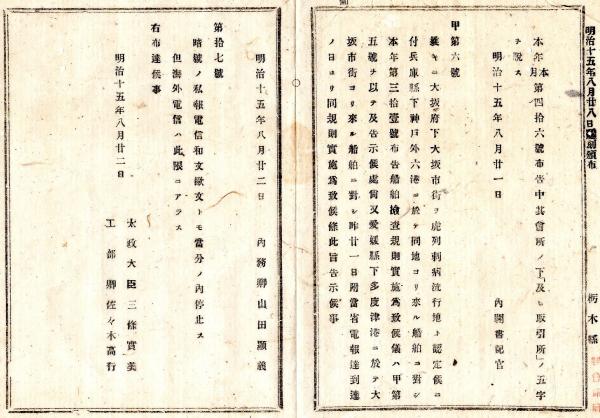 明治十五年八月廿八日 頒布
栃木縣
本年本月第四拾六號布告中其會所ノ下「及ヒ取引所」ノ五字
ヲ脱ス
明治十五年八月廿一日
內閣書記官
甲第六號
曩キニ大坂府下大坂市街ヲ虎列剌病流行地ト認定候ニ
付兵庫縣下神戸外六港ニ於テ同地ヨリ來ル船舶ニ對シ
本年第三拾壹號布告船舶撿査規則實施爲致候儀ハ甲第
五號ヲ以テ及告示候處尙又愛媛縣下多度津港ニ於テ大
坂市街ヨリ來ル船舶ニ對シ昨廿一日附當省電報達到達
ノ日ヨリ同規則實施爲致候條此旨告示候事
明治十五年八月廿二日
內務卿山田顯義
第拾七號
暗號ノ私報電信和文歐文トモ當分ノ內停止ス
但海外電信ハ此限ニアラス
右布達候事
明治十五年八月廿二日
太政大臣三條實美
工部卿佐々木高行